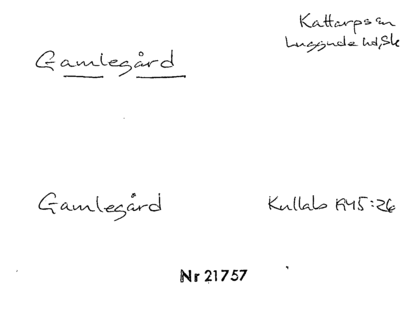 Kattarps sn
Luggude hd, Sk
Gamlegård
Gamlegård Kullab 1945:26
Nr 21757